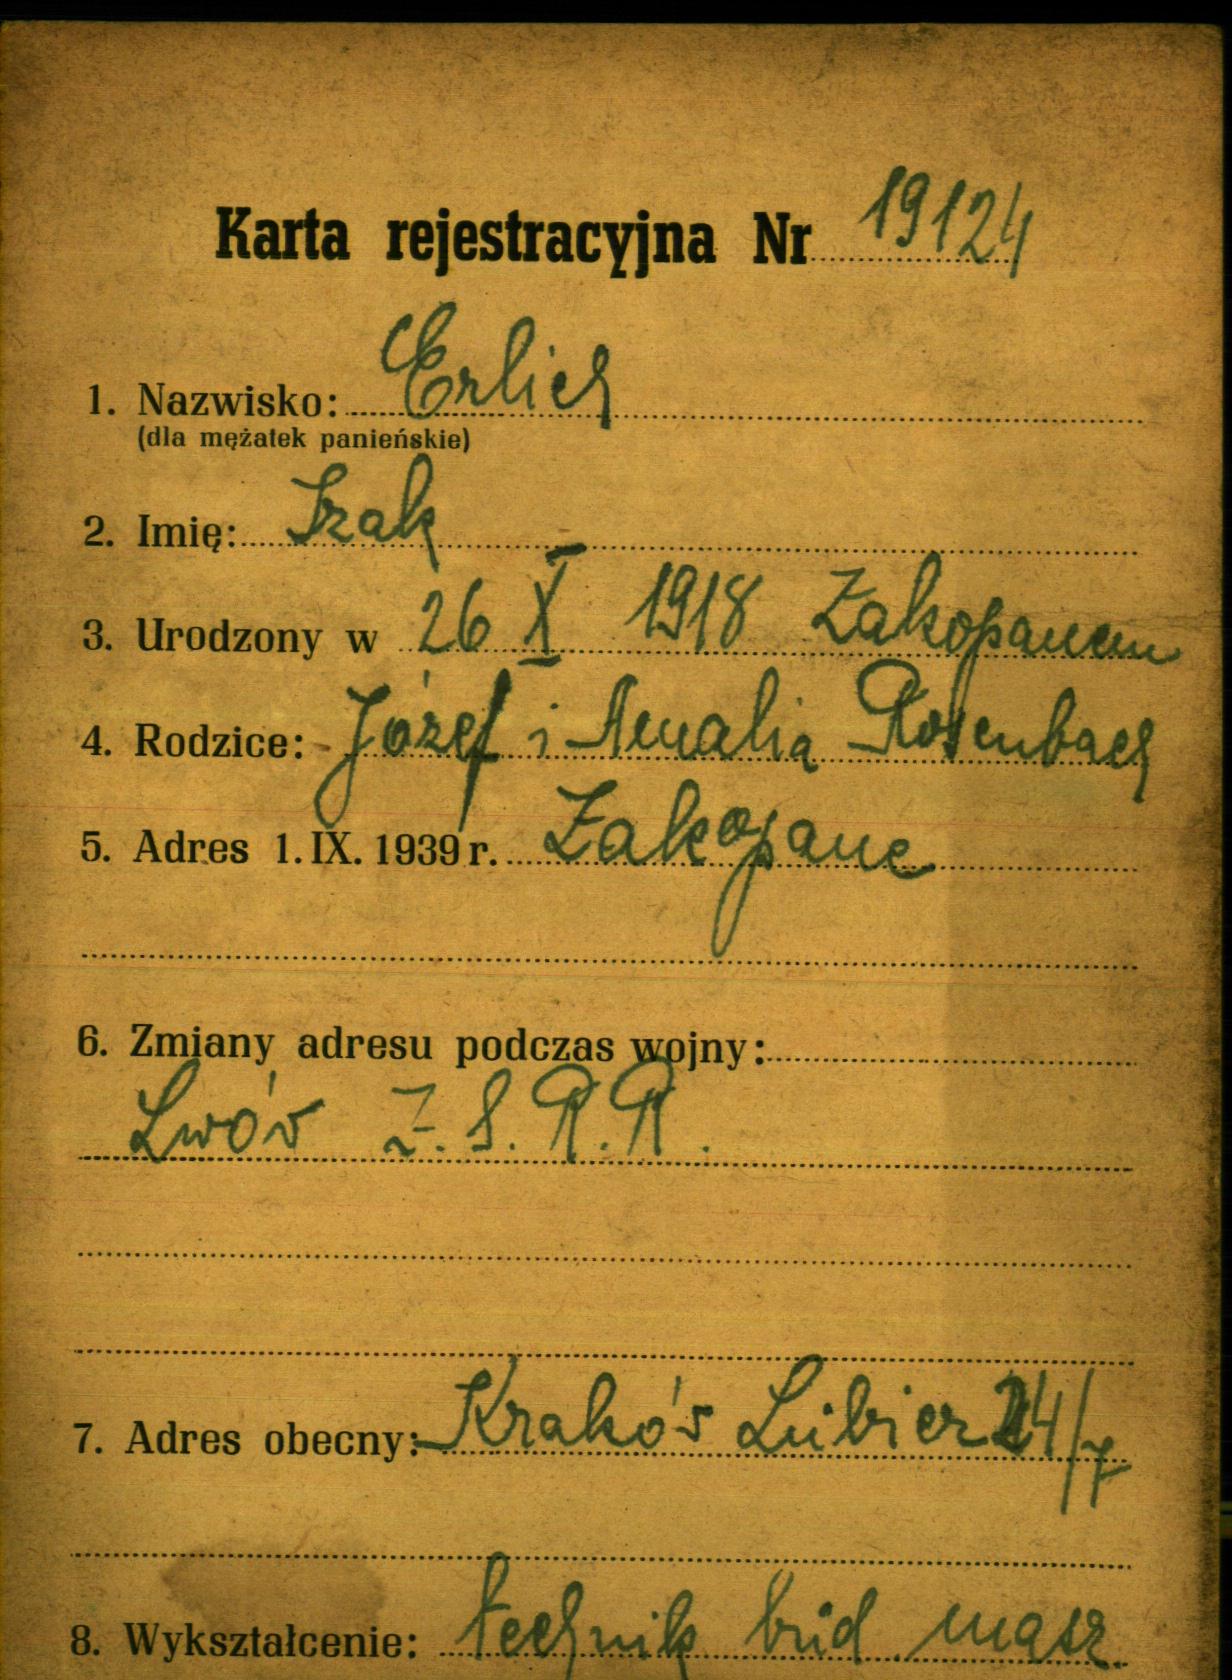 Karta rejestracyjna Nr 19124
1. Nazwisko: Erlich
(dla mężatek panieńskie)
2. Imię: Izak
3. Urodzony w 26 X 1918 Zakopanem
4. Rodzice: Józef i Amalia Rosenbach
5. Adres 1. IX. 1939 r. Zakopane
6. Zmiany adresu podczas wojny:
Lwów Z.S.R.R.
7. Adres obecny: Kraków Lubicz 24/7
8. Wykształcenie: technik bud. masz.